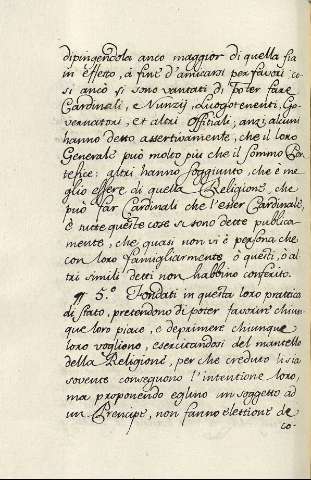 dipingendola anco maggior di quella sia
in effetto, à fine d'amicarsi per favori: co-
si anco si sono vantati di Poter fare
Cardinali, e Nunzij, Luogotenenti, Go-
vernatori, et altri Officiali, anzi alcuni
hanno detto assertivamente, che il loro
Generale può molto più che il sommo Pon-
tefice: altri hanno soggiunto, che è me-
glio essere di quella Religione, che
può far Cardinali che l'esser Cardinale,
e tutte queste cose si sono dette publica-
mente, che quasi non vi è persona che
con loro famigliarmente, ò questi, ò al-
tri simili detti non habbino conferito.
5.º Fondati in questa loro prattica
di stato, pretendono di poter favorir chiun-
que loro piace, e deprimere chiunque
loro vogliono, esercitandosi del mantello
della Religione, per che creduto li sia
sovente conseguono l'intentione loro,
ma proponendo eglino un soggetto ad
un Prencipe, non fanno elettione de
co-